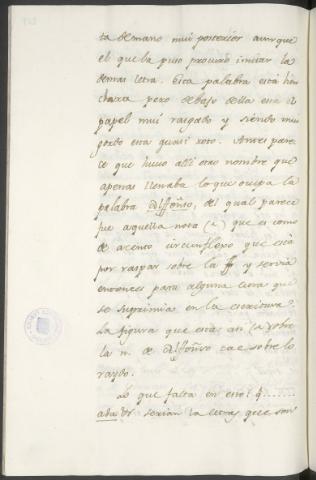 ta de mano mui posterior aunque
el que la puso procuro imitar la
demas letra. Esta palabra está
pero debajo della esta el
papel mui rasgado y siendo mui
gordo esta quasi roto. Antes pare-
ce que huuo alli otro nombre que
apenas llenaba lo que ocupa la
palabra Alffoñso, del qual parece
fue aquella nota (~) que es como
de acento circunflexo que está
por raspar sobre la ff y servia
entonces para alguna cosa que
se suprimia en la escritura.
La figura que está asi (~) sobre
la n. de Alffoñso cae sobre lo
raydo.
Lo que falta en esto! q.......
serian la letras que son